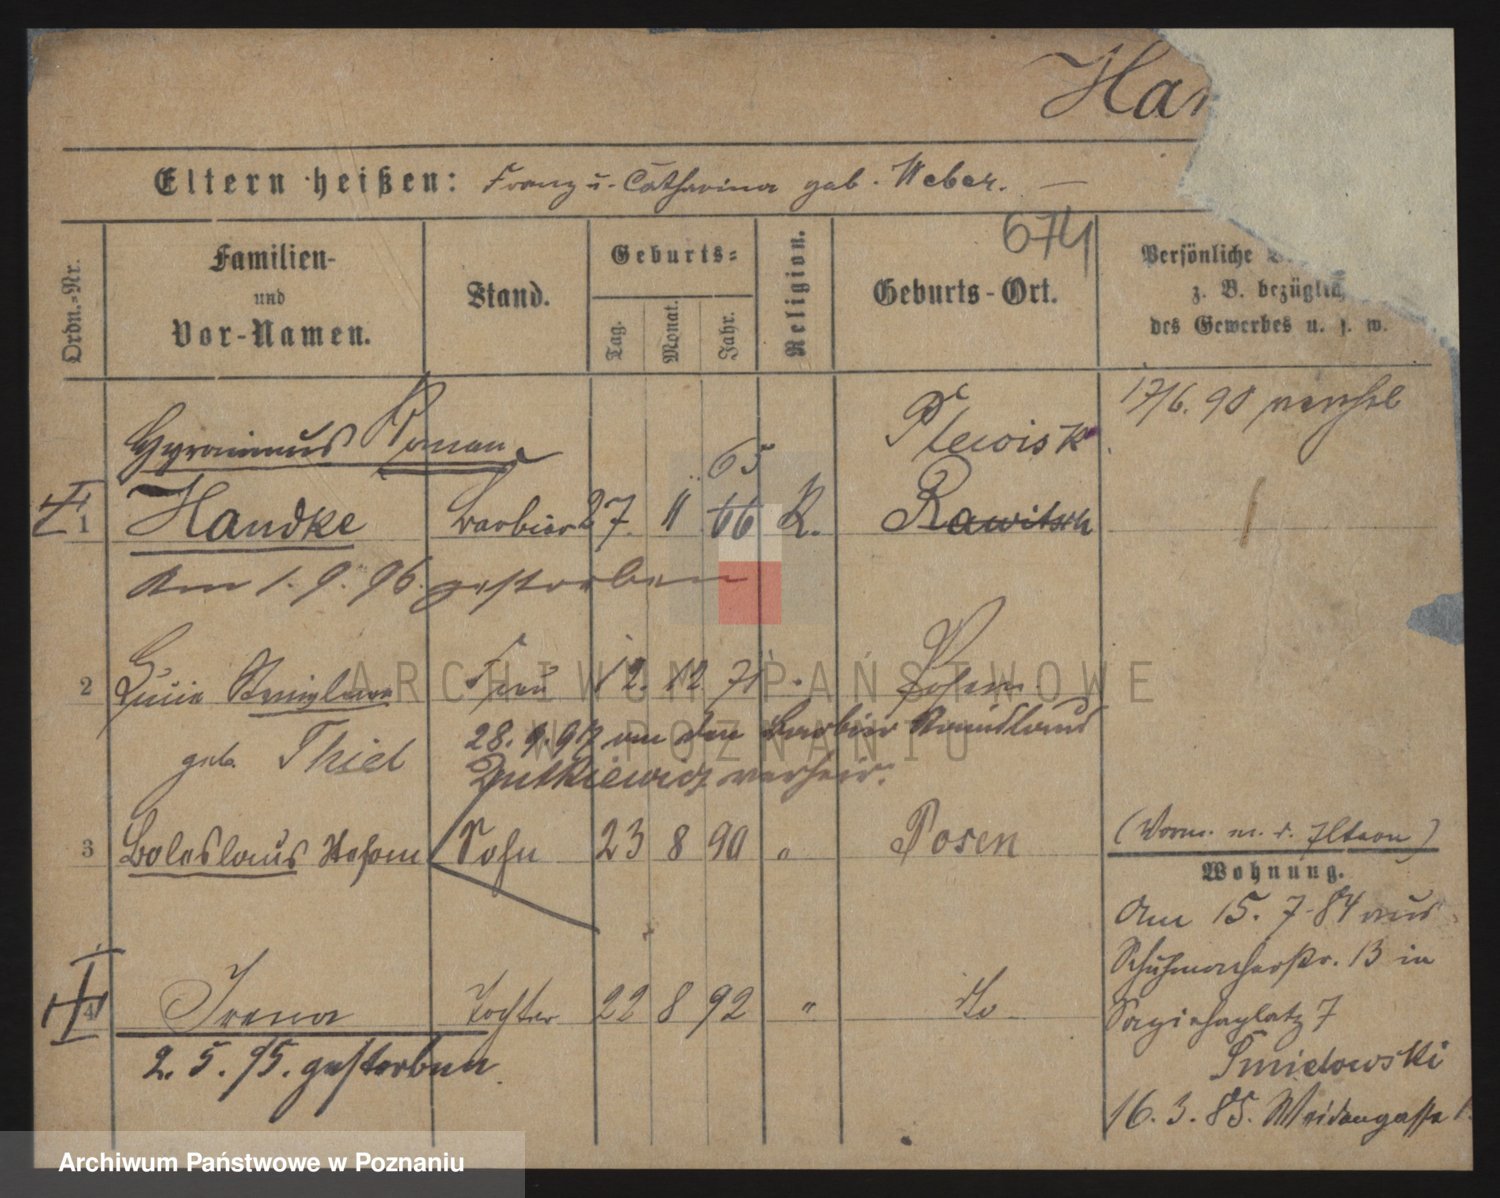 Han
Eltern heißen: Franz u. Catharina geb. Weber. —
674
Ordn.-Nr.
Familien-
und
Vor-Namen.
Stand.
Geburts-
Tag.
Monat.
Jahr.
Religion.
Geburts-Ort.
Persönliche
z. B. bezüglich
des Gewerbes u. s. w.
17/6. 90
Hyronimus Roman
65
Plewisk
1 Handke Barbier 27. 11 66 K. Rawitsch
Am 1. 9. 96. gestorben
2 Lucie Stanislawa Frau 12. 12 71 Posen
geb. Thiel
28. 9. 97 an den Barbier Stanislaus
Dutkiewicz verheir.
3 Boleslaus Stefan Sohn 23 8 90 " Posen
(Vorm. m. d. Eltern)
Wohnung.
Am 15. 7. 84 aus
Schuhmacherstr. 13 in
Sapiehaplatz 7
Smidowski
16. 3. 85. Weidengasse
4 Irena Tochter 22 8 92 " do
2. 5. 95. gestorben.
ARCHIWUM PAŃSTWOWE
W POZNANIU
Archiwum Państwowe w Poznaniu